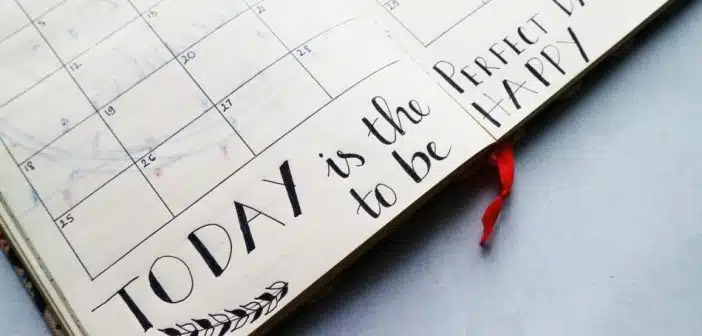 5
12 13
18 19 20 21
25 26 27 28
23
TODAY is the PERFECT
to be HAPPY